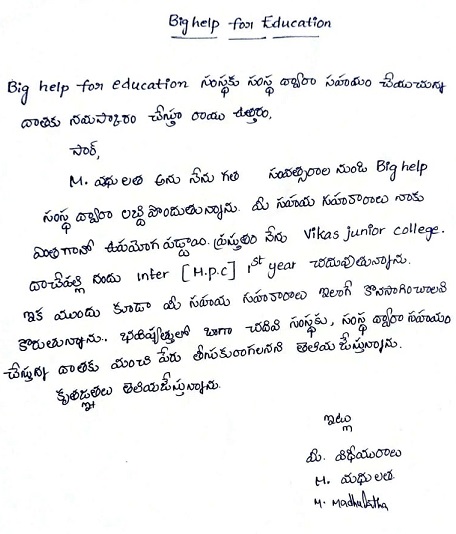 Big help for Education
Big help for education సంస్థకు సంస్థ ద్వారా సహాయం చేయుచున్న
దాతకు నమస్కారం చేస్తూ రాయు ఉత్తరం,
సార్,
M. మధు లత అను నేను గత సంవత్సరాల నుండి Big help
సంస్థ ద్వారా లబ్ది పొందుతున్నాను. మీ సహాయ సహకారాలు నాకు
ఎంతగానో ఉపయోగ పడ్డాయి. ప్రస్తుతం నేను Vikas junior college.
దాచేపల్లి నందు inter [M.p.c] 1st year చదువుతున్నాను.
ఇక ముందు కూడా మీ సహాయ సహకారాలు ఇలాగే కొనసాగించాలని
కోరుతున్నాను.. భవిష్యత్తులో బాగా చదివి సంస్థకు, సంస్థ ద్వారా సహాయం
చేస్తున్న దాతకు మంచి పేరు తీసుకురాగలనని తెలియ జేస్తున్నాను.
కృతజ్ఞతలు తెలియజేస్తున్నాను.
ఇట్లు
మీ. విధేయురాలు
M. మధు లత
M. Madhulatha